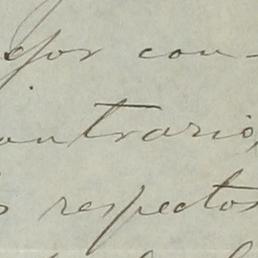 por con-
ontrario,
s respectos